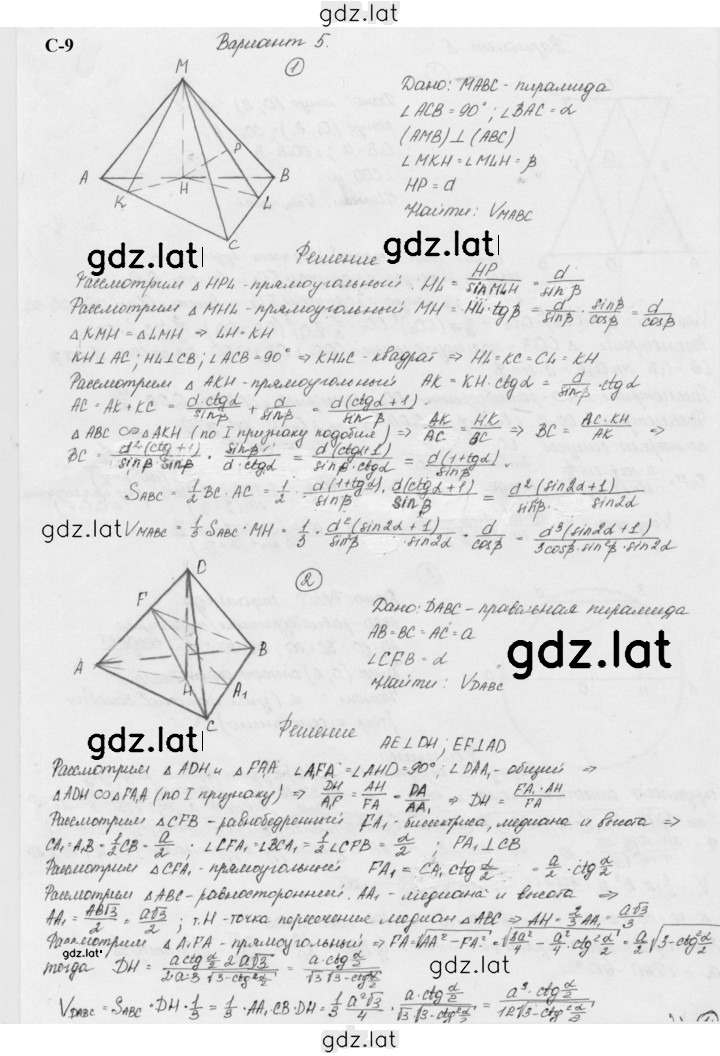 gdz.lat
С-9
Вариант 5.
1
M
P
A
H
B
K
L
C
Дано: MABC - пирамида
∠ACB = 90°; ∠BAC = α
(AMB) ⊥ (ABC)
∠MKH = ∠MLH = β
HP = d
Найти: V_MABC
gdz.lat
Решение
Рассмотрим △ HPL - прямоугольный. HL = HP/sin MLH = d/sinβ
Рассмотрим △ MHL - прямоугольный MH = HL·tgβ = d/sinβ · sinβ/cosβ = d/cosβ
△KMH = △LMH ⇒ LH = KH
KH ⊥ AC; HL ⊥ CB; ∠ACB = 90° ⇒ KHLC - квадрат ⇒ HL = KC = CL = KH
Рассмотрим △ AKH - прямоугольный AK = KH·ctgα = d/sinβ · ctgα
AC = AK + KC = d·ctgα/sinβ + d/sinβ = d(ctgα+1)/sinβ
△ABC ∞ △AKH (по I признаку подобия) ⇒ AK/AC = HK/BC ⇒ BC = AC·KH/AK ⇒
BC = d²(ctg+1)/sinβ sinβ · sinβ/d·ctgα = d(ctgα+1)/sinβ·ctgα = d(1+tgα)/sinβ.
S_ABC = 1/2 BC·AC = 1/2 · d(1+tgα)/sinβ · d(ctgα+1)/sinβ = d²(sin2α+1)/sin²β · sin2α
gdz.lat V_MABC = 1/3 S_ABC·MH = 1/3 · d²(sin2α+1)/sin²β · sin2α · d/cosβ = d³(sin2α+1)/3cosβ·sin²β·sin2α
2
D
F
A
B
H
A₁
C
Дано: DABC - правильная пирамида
AB = BC = AC = a
∠CFB = α
Найти: V_DABC
gdz.lat
gdz.lat
Решение
AE ⊥ DH; EF ⊥ AD
Рассмотрим △ ADH и △ FA₁A ∠A₁FA = ∠AHD = 90°; ∠DAA₁ - общий ⇒
△ADH ∞ △FA₁A (по I признаку) ⇒ DH/A₁F = AH/FA = DA/AA₁ ⇒ DH = FA₁·AH/FA
Рассмотрим △CFB - равнобедренный FA₁ - биссектриса, медиана и высота ⇒
CA₁ = A₁B = 1/2 CB = a/2; ∠CFA₁ = ∠BFA₁ = 1/2 ∠CFB = α/2; FA₁ ⊥ CB
Рассмотрим △CFA₁ - прямоугольный FA₁ = CA₁ ctg α/2 = a/2 · ctg α/2
Рассмотрим △ABC - равносторонней. AA₁ - медиана и высота ⇒
AA₁ = AB√3/2 = a√3/2; т. H - точка пересечение медиан △ABC ⇒ AH = 2/3 AA₁ = a√3/3
Рассмотрим △ A₁FA - прямоугольный ⇒ FA = √(AA₁² − FA₁²) = √(3a²/4 − a²/4 · ctg² α/2) = a/2 √(3 − ctg² α/2)
gdz.lat
тогда DH = a ctg α/2 · 2a√3/2·a·3 √(3 − ctg² α/2) = a·ctg α/2/√3 √(3 − ctg² α/2)
gdz.lat
V_DABC = S_ABC·DH·1/3 = 1/3·AA₁·CB·DH = 1/3 a²√3/4 · a·ctg α/2/√3 √(3 − ctg² α/2) = a³·ctg α/2/12√(3 − ctg² α/2)
gdz.lat